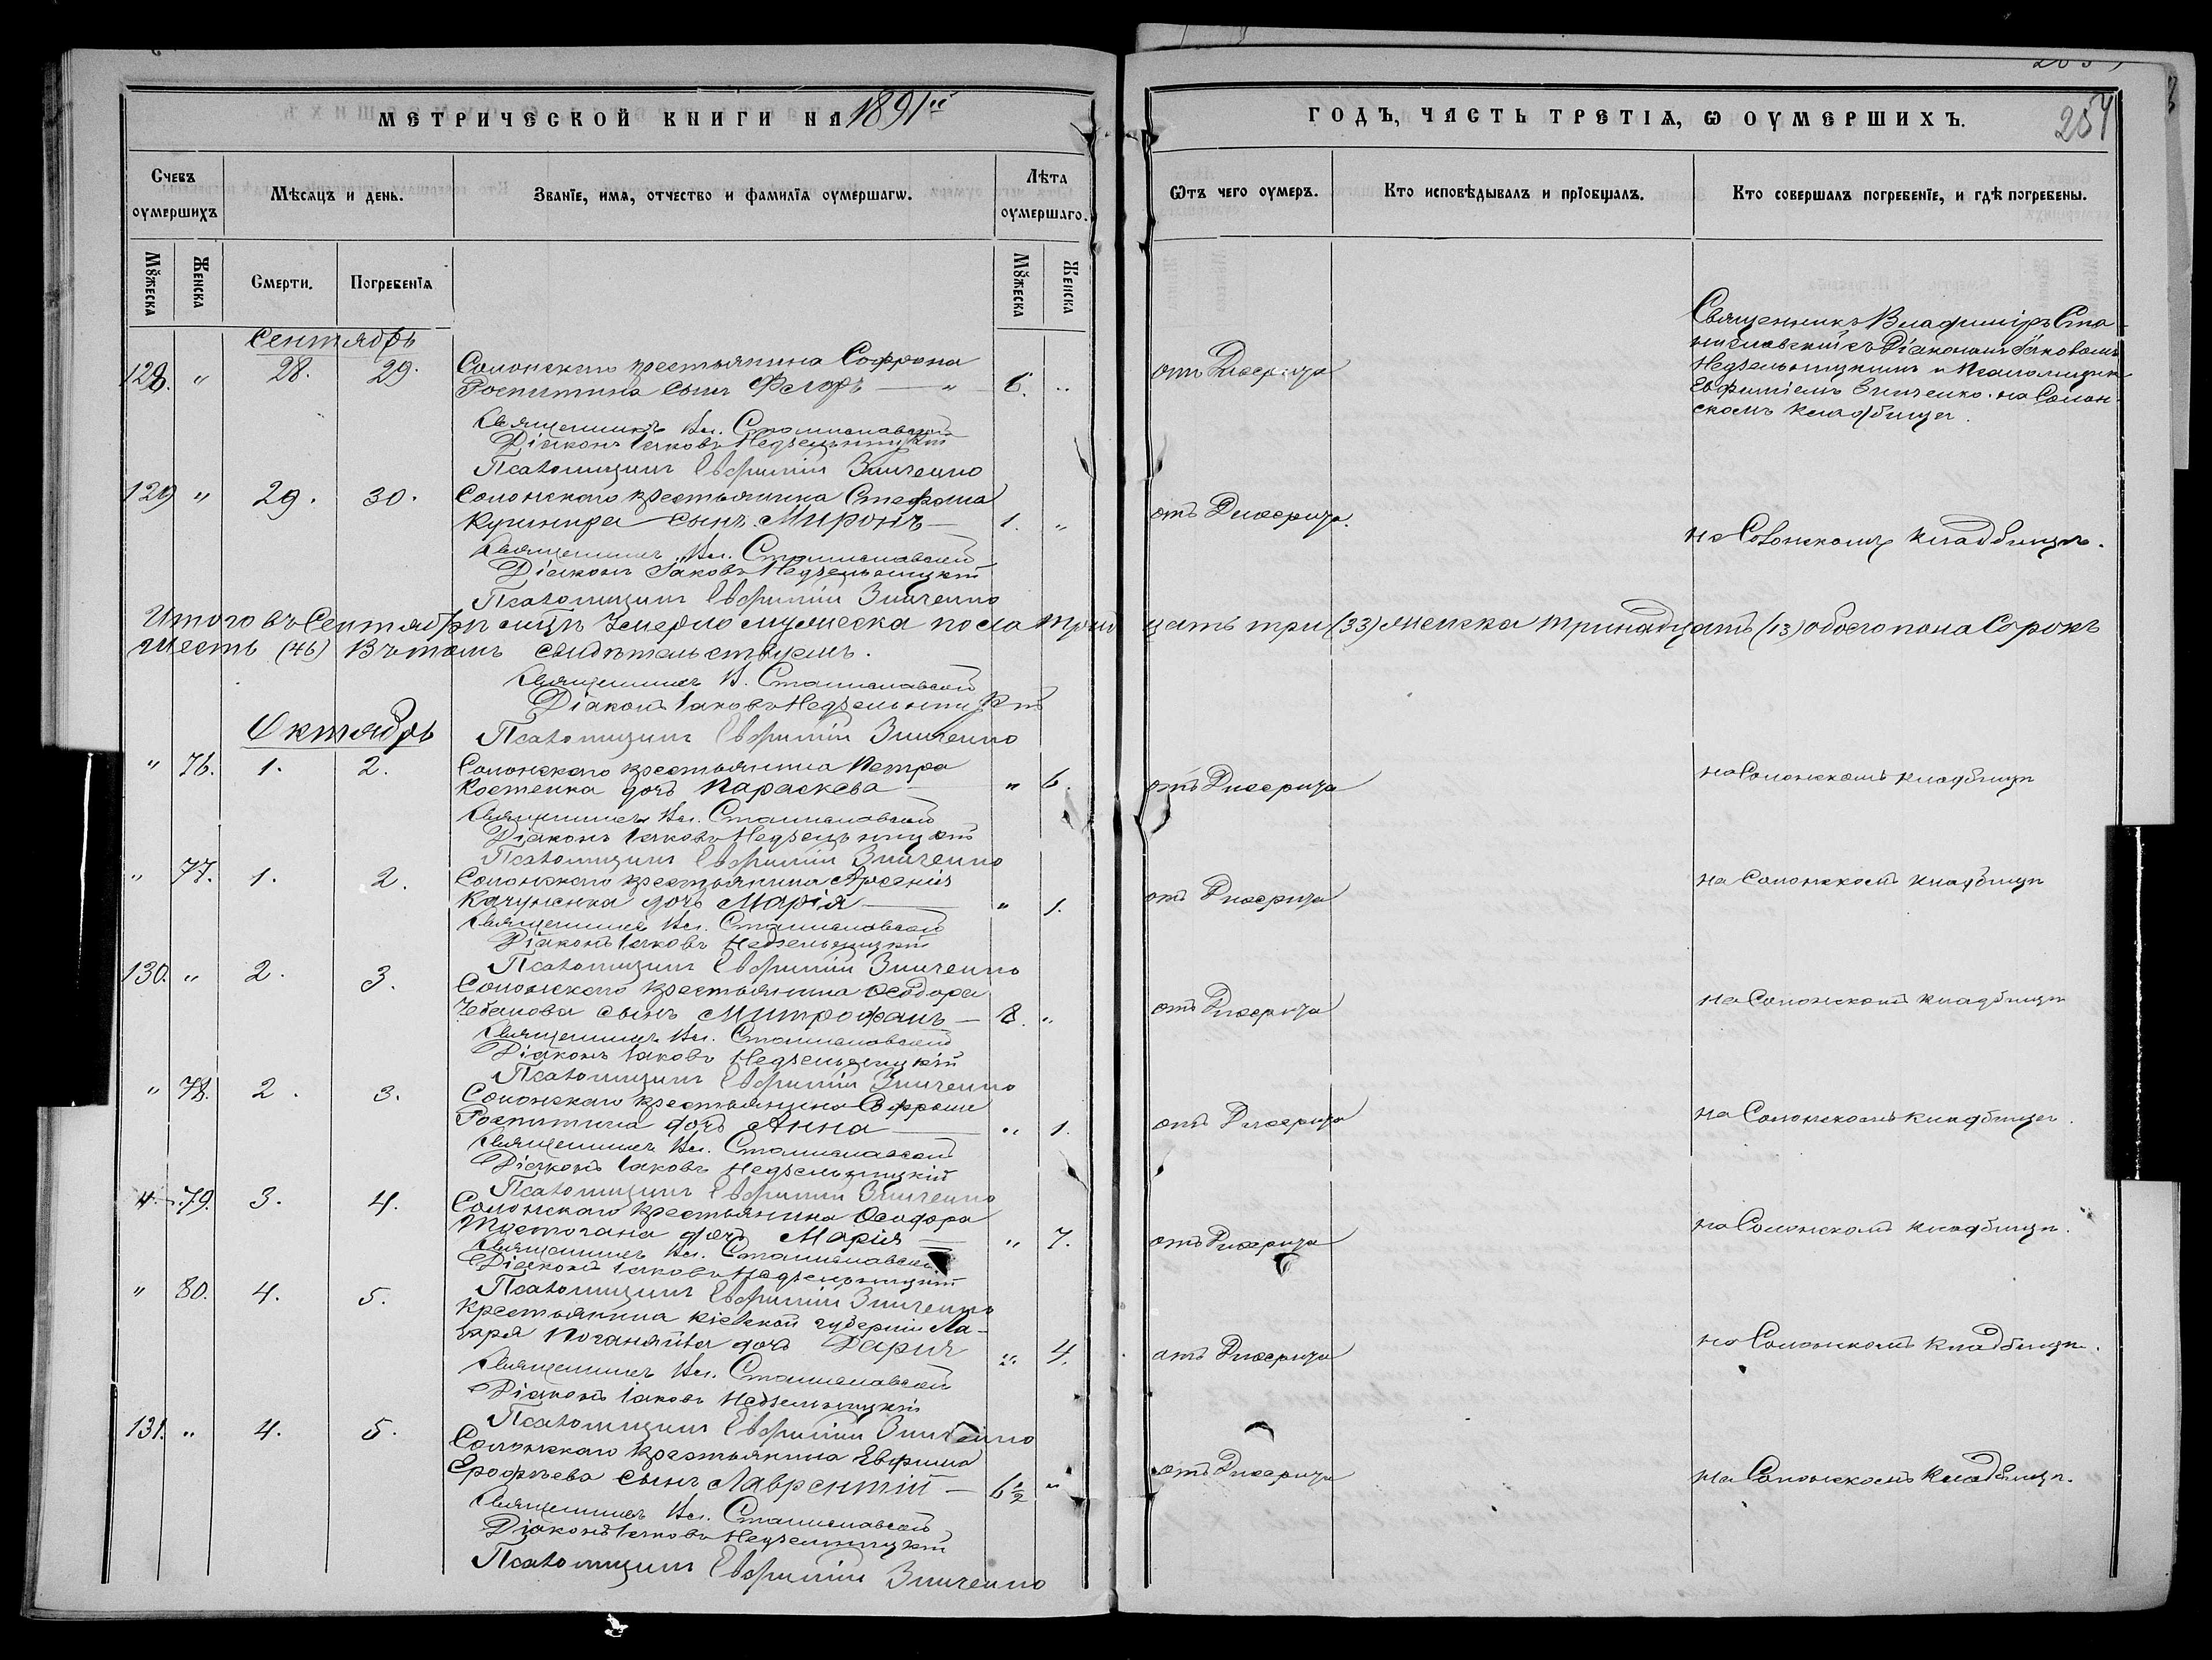 МЕТРИЧЕСКОЙ КНИГИ НА 1891й ГОДЪ, ЧАСТЬ ТРЕТІѦ, Ѡ ОУМЕРШИХЪ.
254
Счевъ оумершихъ
Мѣсяцъ и день.
Званіе, имя, отчество и фамилія оумершагѡ.
Лѣта оумершаго.
Ѿтъ чего оумеръ.
Кто исповѣдывалъ и пріобщалъ.
Кто совершалъ погребеніе, и гдѣ погребены.
Мꙋжеска
Женска
Смерти.
Погребенія
Мꙋжеска
Женска
Сентябрь
128. " 28. 29. Солонскаго крестьянина Софрона
сынъ Федоръ — " 6. " отъ Дифтерита
Священникъ Владиміръ Ста-
ниславскій съ Діакономъ Іаковомъ
Недзельницкимъ и Псаломщик
Евфиміемъ Зинченко. на Солон-
скомъ кладбищѣ.
Священникъ Вл. Станиславскій
Діаконъ Іаковъ Недзельницкій
Псаломщикъ Евфимій Зинченко
129 " 29. 30. Солонскаго крестьянина Стефана
Кушнира сынъ Миронъ — 1. " отъ Дифтерита. на Солонскомъ кладбищѣ.
Священникъ Вл. Станиславскій
Діаконъ Іаковъ Недзельницкій
Псаломщикъ Евфимій Зинченко
Итого въ Сентябрѣ мцѣ Умерло мужеска пола трид цать три (33) женска тринадцать (13) обоего пола Сорокъ
шесть (46) Въ томъ свидѣтельствуемъ.
Священникъ В. Станиславскій
Діаконъ Іаковъ Недзельницкій
Октябрь
Псаломщикъ Евфимій Зинченко
" 76. 1. 2. Солонскаго крестьянина Петра
Костенка дочь Параскева — " 6. отъ Дифтерита на Солонскомъ кладбищѣ
Священникъ Вл. Станиславскій
Діаконъ Іаковъ Недзельницкій
Псаломщикъ Евфимій Зинченко
" 77. 1. 2. Солонскаго крестьянина Арсенія
дочь Марія — " 1. отъ Дифтерита на Солонскомъ кладбищѣ
Священникъ Вл. Станиславскій
Діаконъ Іаковъ Недзельницкій
Псаломщикъ Евфимій Зинченко
130. " 2. 3. Солонскаго крестьянина Ѳеодора
Чебанова сынъ Митрофанъ — 8. " отъ Дифтерита на Солонскомъ кладбищѣ
Священникъ Вл. Станиславскій
Діаконъ Іаковъ Недзельницкій
Псаломщикъ Евфимій Зинченко
" 78. 2. 3. Солонскаго крестьянина Софрона
дочь Анна — " 1. отъ Дифтерита на Солонскомъ кладбищѣ.
Священникъ Вл. Станиславскій
Діаконъ Іаковъ Недзельницкій
Псаломщикъ Евфимій Зинченко
" 79. 3. 4. Солонскаго крестьянина Ѳеодора
дочь Марія — " 7. отъ Дифтерита на Солонскомъ кладбищѣ.
Священникъ Вл. Станиславскій
Діаконъ Іаковъ Недзельницкій
Псаломщикъ Евфимій Зинченко
" 80. 4. 5. Крестьянина Кіевской губерніи Ла-
заря Поганяйла дочь Дарія " 4. отъ Дифтерита на Солонскомъ кладбищѣ.
Священникъ Вл. Станиславскій
Діаконъ Іаковъ Недзельницкій
Псаломщикъ Евфимій Зинченко
131. " 4. 5. Солонскаго крестьянина Евфима
Ерофѣева сынъ Лаврентій — 6 1/2 " отъ Дифтерита на Солонскомъ кладбищѣ.
Священникъ Вл. Станиславскій
Діаконъ Іаковъ Недзельницкій
Псаломщикъ Евфимій Зинченко